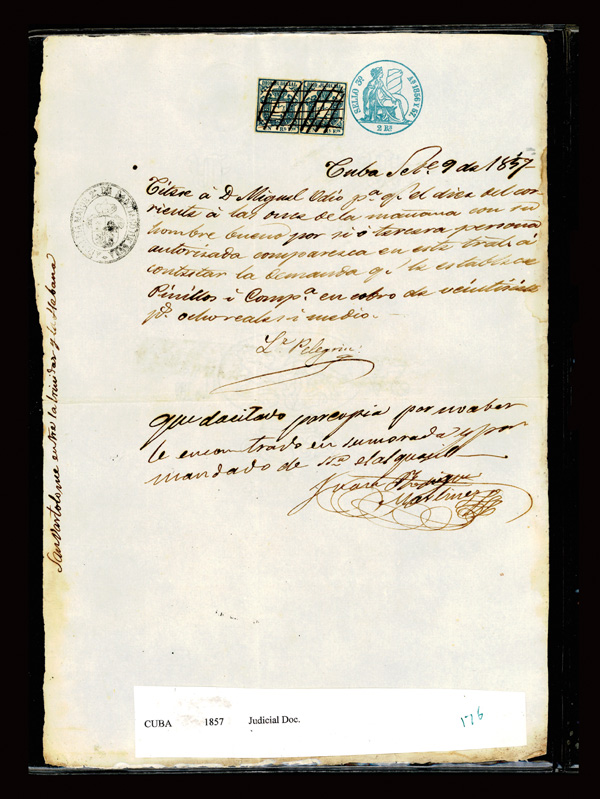 SELLO 3º Aº 1856 Y 57.
2 Rs
Cuba Set.e 9 de 1857
Citese á D Miguel Odio p.a q.e el diez del cor
riente á las once de la mañana con su
hombre bueno por si ó tercera persona
autorizada comparesca en este trál. á
contestar la demanda q.e le establece
Pinillos i Comp.a en cobro de
p.s ocho reales i medio.
L.z Pelegrin
Queda citado por copia por no aber
le encontrado en su morada y por
mandado de el alguasil
Juan
Martinez
San Bartolomé entre la trinidar y la Habana
CUBA 1857 Judicial Doc.
176